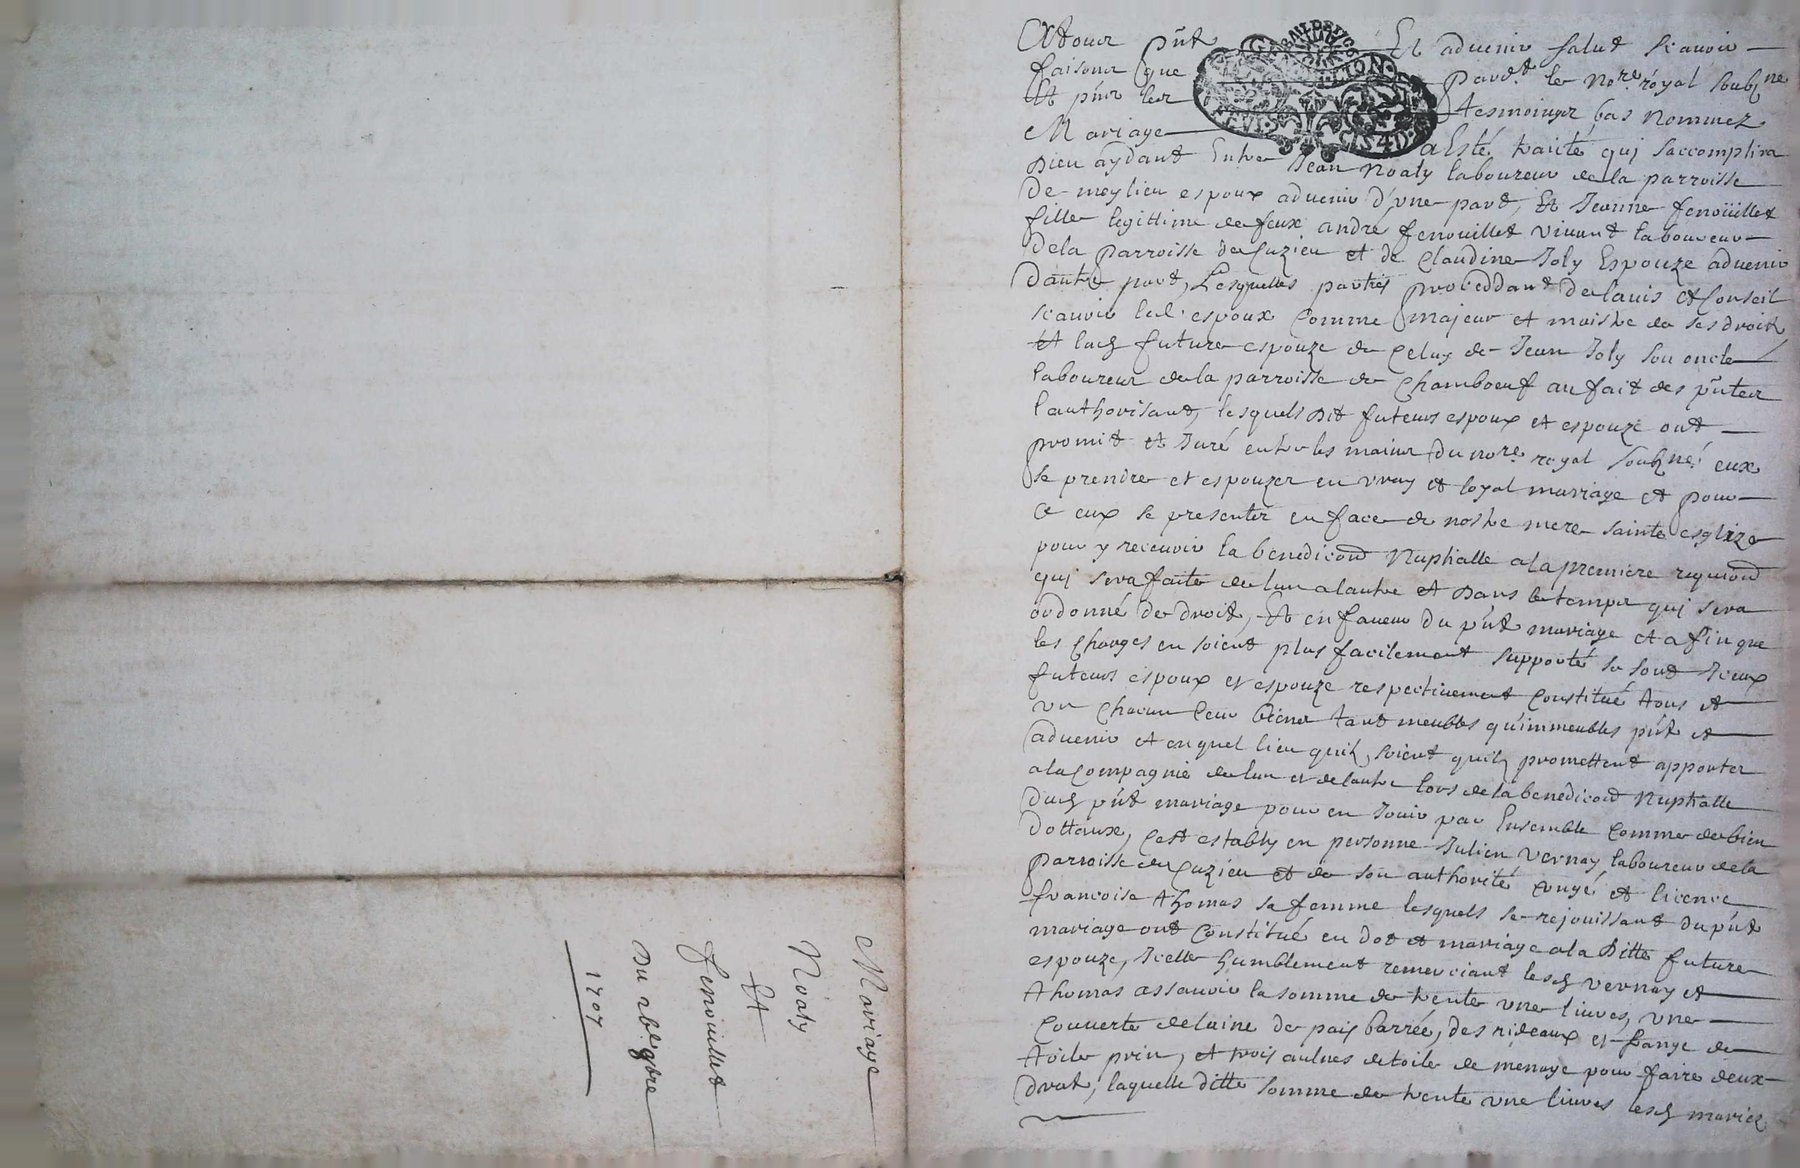 A tous pñts Et aduenir salut scauoir
faisons que pardt le nore royal soubzne
Et pñs les tesmoings bas nommez
Mariage a Esté traicté quj saccomplira
Dieu aydant Entre Jean Noaly laboureur de la parroisse
De meylieu espoux aduenir d'vne part, Et Jeanne fenoüillet
fille legittime de feux andré fenouillet viuant laboureur
De la parroisse de Cuzieu et de Claudine Joly Espouze aduenir
Dautre part, Lesquelles parties proceddant de lauis et Conseil
scauoir led. espoux Comme majeur et maistre de ses droits
Et lad future espouze de Celuy de Jean Joly son oncle
laboureur de la parroisse de Chamboeuf au fait des pñtes
lauthorisant, lesquels Dit futeurs espoux et espouze ont
promit et Juré entre les mains du nore royal soubzné eux
se prendre et espouzer en vray et loyal mariage et pour
Ce eux se presenter en face de nostre mere sainte esglize
pour y receuoir la benediction Nuptialle a la premiere requion
quj sera faite de lun a lautre et Dans le temps quj sera
ordonné de droit, Et en faueur du pñt mariage et afin que
les Charges en soient plus facilement supporté se sont Iceux
futeurs espoux et espouze respectiuement Constitué tous et
vn Chacun leur biens tant meubles quimmeubles pñt et
aduenir et en quel lieu quilz soient quilz promettent apporter
a la Compagnie de lun et de lautre lors de la benediction Nuptialle
Dud pñt mariage pour en Jouir par Ensemble Comme de bien
Dottaux, Cest estably en personne Julien Vernay laboureur de la
Parroisse de Cuzieu et de son authorité Congé et licence
francoise Thomas sa femme lesquels se rejouissant du pñt
mariage ont Constitué en dot et mariage a la Ditte future
espouze, Icelle humblement remerciant lesd Vernay et
Thomas assauoir la somme de trente vne liures, vne
Couuerte de laine de païs barrée, des rideaux et frange de
toile prin, et trois aulnes de toile de menage pour faire deux
drat, laquelle ditte somme de trente vne liures lesd mariez
GNALITE
LION
Mariage
Noaly
Et
fenouillet
Du xbre
1707